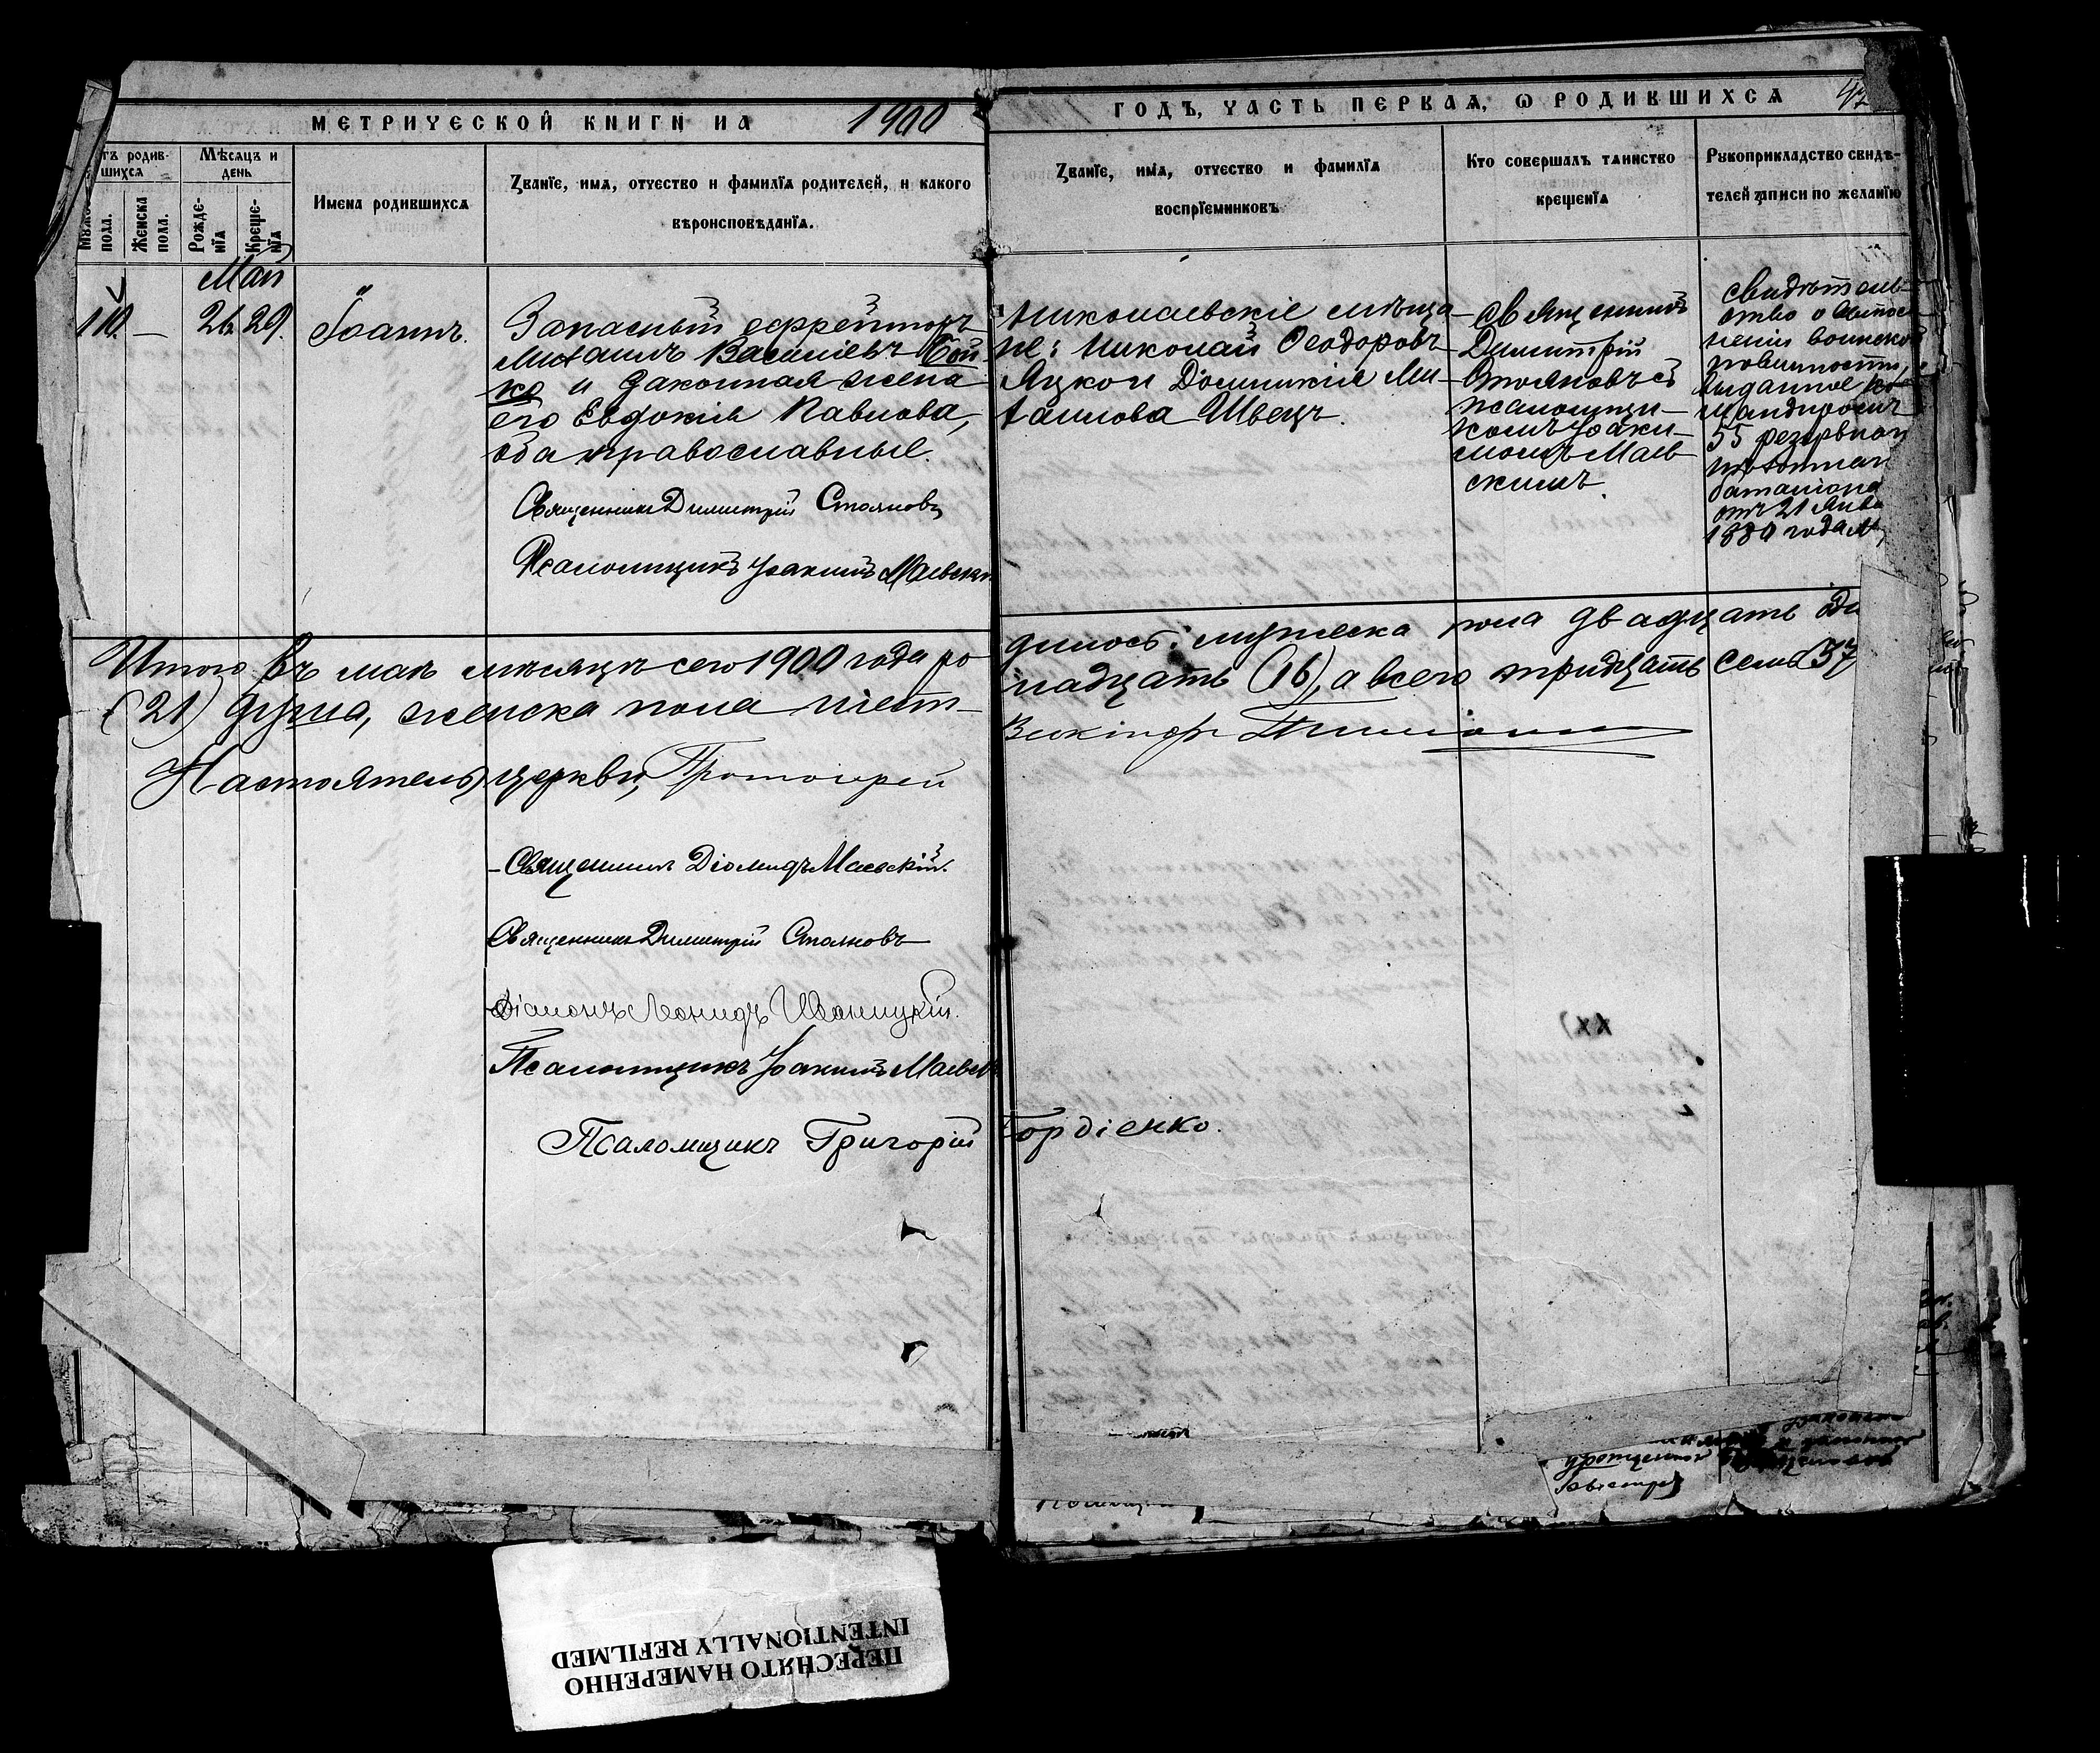 МЕТРИЧЕСКОЙ КНИГИ НА 1900
ГОДЪ, ЧАСТЬ ПЕРВАЯ, Ѡ РОДИВШИХСЯ
родив-
шихся
Мѣсяцъ и
день
Имена родившихся
Званїе, имя, отчество и фамилїя родителей, и какого
вѣроисповѣданїя.
пола.
Женска
пола.
Рожде-
нїя
Креще-
нїя
Званїе, имя, отчество и фамилїя
воспрїемниковъ
Кто совершалъ таинство
крещенїя
Рукоприкладство свидѣ-
телей записи по желанїю
Май
110. — 26 29.
Іоаннъ.
Запасный ефрейторъ
Михаилъ Васильевъ Бой-
ко и законная жена
его Евдокія Павлова,
оба православные.
Священникъ Димитрій Стояновъ
Псаломщикъ Іоакимъ Маевскі
Николаевскіе мѣща-
не: Николай Ѳеодоровъ
Яцко и Домникія Ми-
хаилова Швецъ.
Священникъ
Димитрій
Стояновъ съ
псаломщи-
комъ Іоаки-
момъ Маев-
скимъ.
Свидѣтель-
ство о выпол-
неніи воинской
повинности,
выданное ко-
мандиромъ
55 резервнаго
пѣхотнаго
баталіона
отъ 21 Янва
1889 года
Итого въ маѣ мѣсяцѣ сего 1900 года ро
дилось: мужеска пола двадцать
(21) душа, женска пола шест-
надцать (16), а всего тридцать семь (37
Настоятель церкви, Протоіерей
Священникъ Діомидъ Маевскій.
Священникъ Димитрій Стояновъ
Діаконъ Леонидъ Иваницкій.
Псаломщикъ Іоакимъ Маевск
Псаломщикъ Григорій Гордіенко.
ПЕРЕСНЯТО НАМЕРЕННО
INTENTIONALLY REFILMED